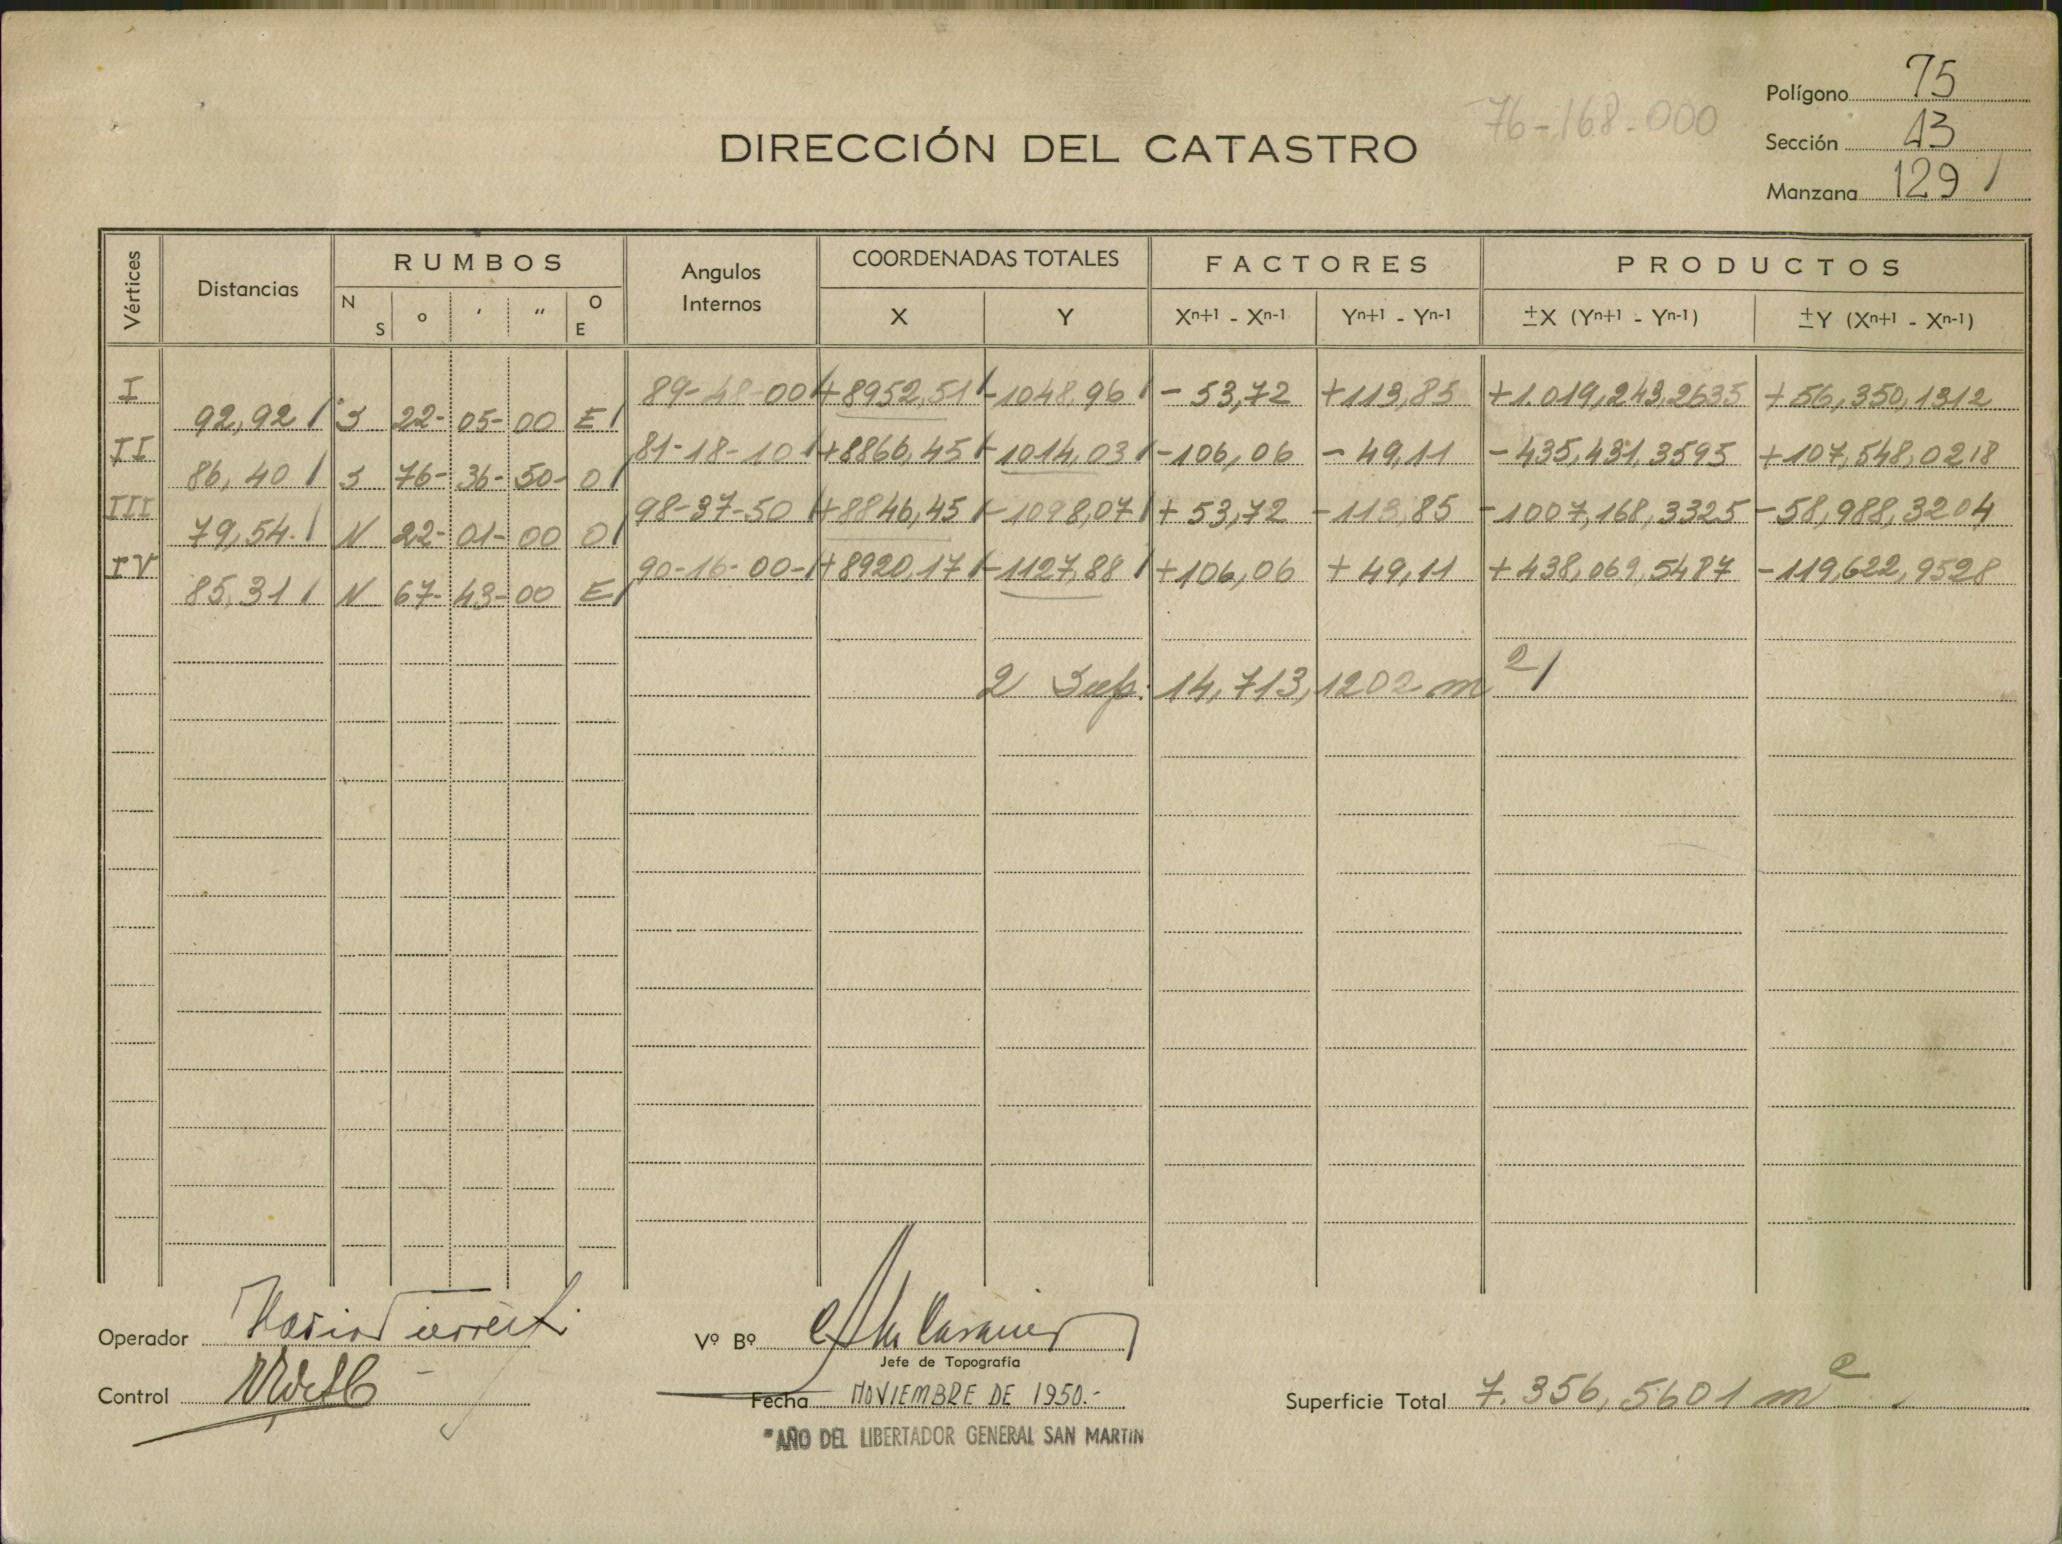 76-168-000
Polígono 75
Sección 43
Manzana 129
DIRECCIÓN DEL CATASTRO
Vértices Distancias RUMBOS Angulos Internos COORDENADAS TOTALES FACTORES PRODUCTOS
N S o ' " O E X Y Xn+1 - Xn-1 Yn+1 - Yn-1 ±X (Yn+1 - Yn-1) ±Y (Xn+1 - Xn-1)
I 89-48-00 +8952,51 -1048,96 -53,72 +113,85 +1.019,243,2635 +56,350,1312
92,92 S 22-05-00 E
II 81-18-10 +8866,45 -1014,03 -106,06 -49,11 -435,431,3595 +107,548,0218
86,40 S 76-36-50- O
III 98-37-50 +8846,45 -1098,07 +53,72 -113,85 -1007,168,3325 -58,988,3204
79,54. N 22-01-00 O
IV 90-16-00- +8920,17 -1127,88 +106,06 +49,11 +438,069,5487 -119,622,9528
85,31 N 67-43-00 E
2 Sup. 14,713,1202 m2
Operador
Vº Bº
Jefe de Topografía
Control
Fecha NOVIEMBRE DE 1950.-
Superficie Total 7.356,5601 m2
"AÑO DEL LIBERTADOR GENERAL SAN MARTIN